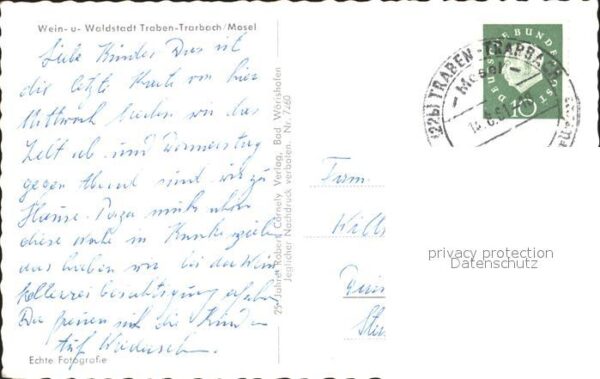 Wein- u- Waldstadt Traben-Trarbach/Mosel
Liebe Kinder Dies ist
die letzte Karte von hier
Mittwoch brechen wir das
Zelt ab und Donnerstag
gegen Abend sind wir zu
Hause. Papa
diese in
das haben wir bei der Wein
kellerei besichtigung
Die freuen sich die Kinder
Auf Wiedersehn.
Echte Fotografie
25 Jahre Robert Cornely Verlag, Bad Wörishofen
Jeglicher Nachdruck verboten. Nr. 7260
DEUTSCHE BUNDESPOST
10
(22b) TRABEN-TRARBACH
- Mosel -
Fam.
Will
privacy protection
Datenschutz